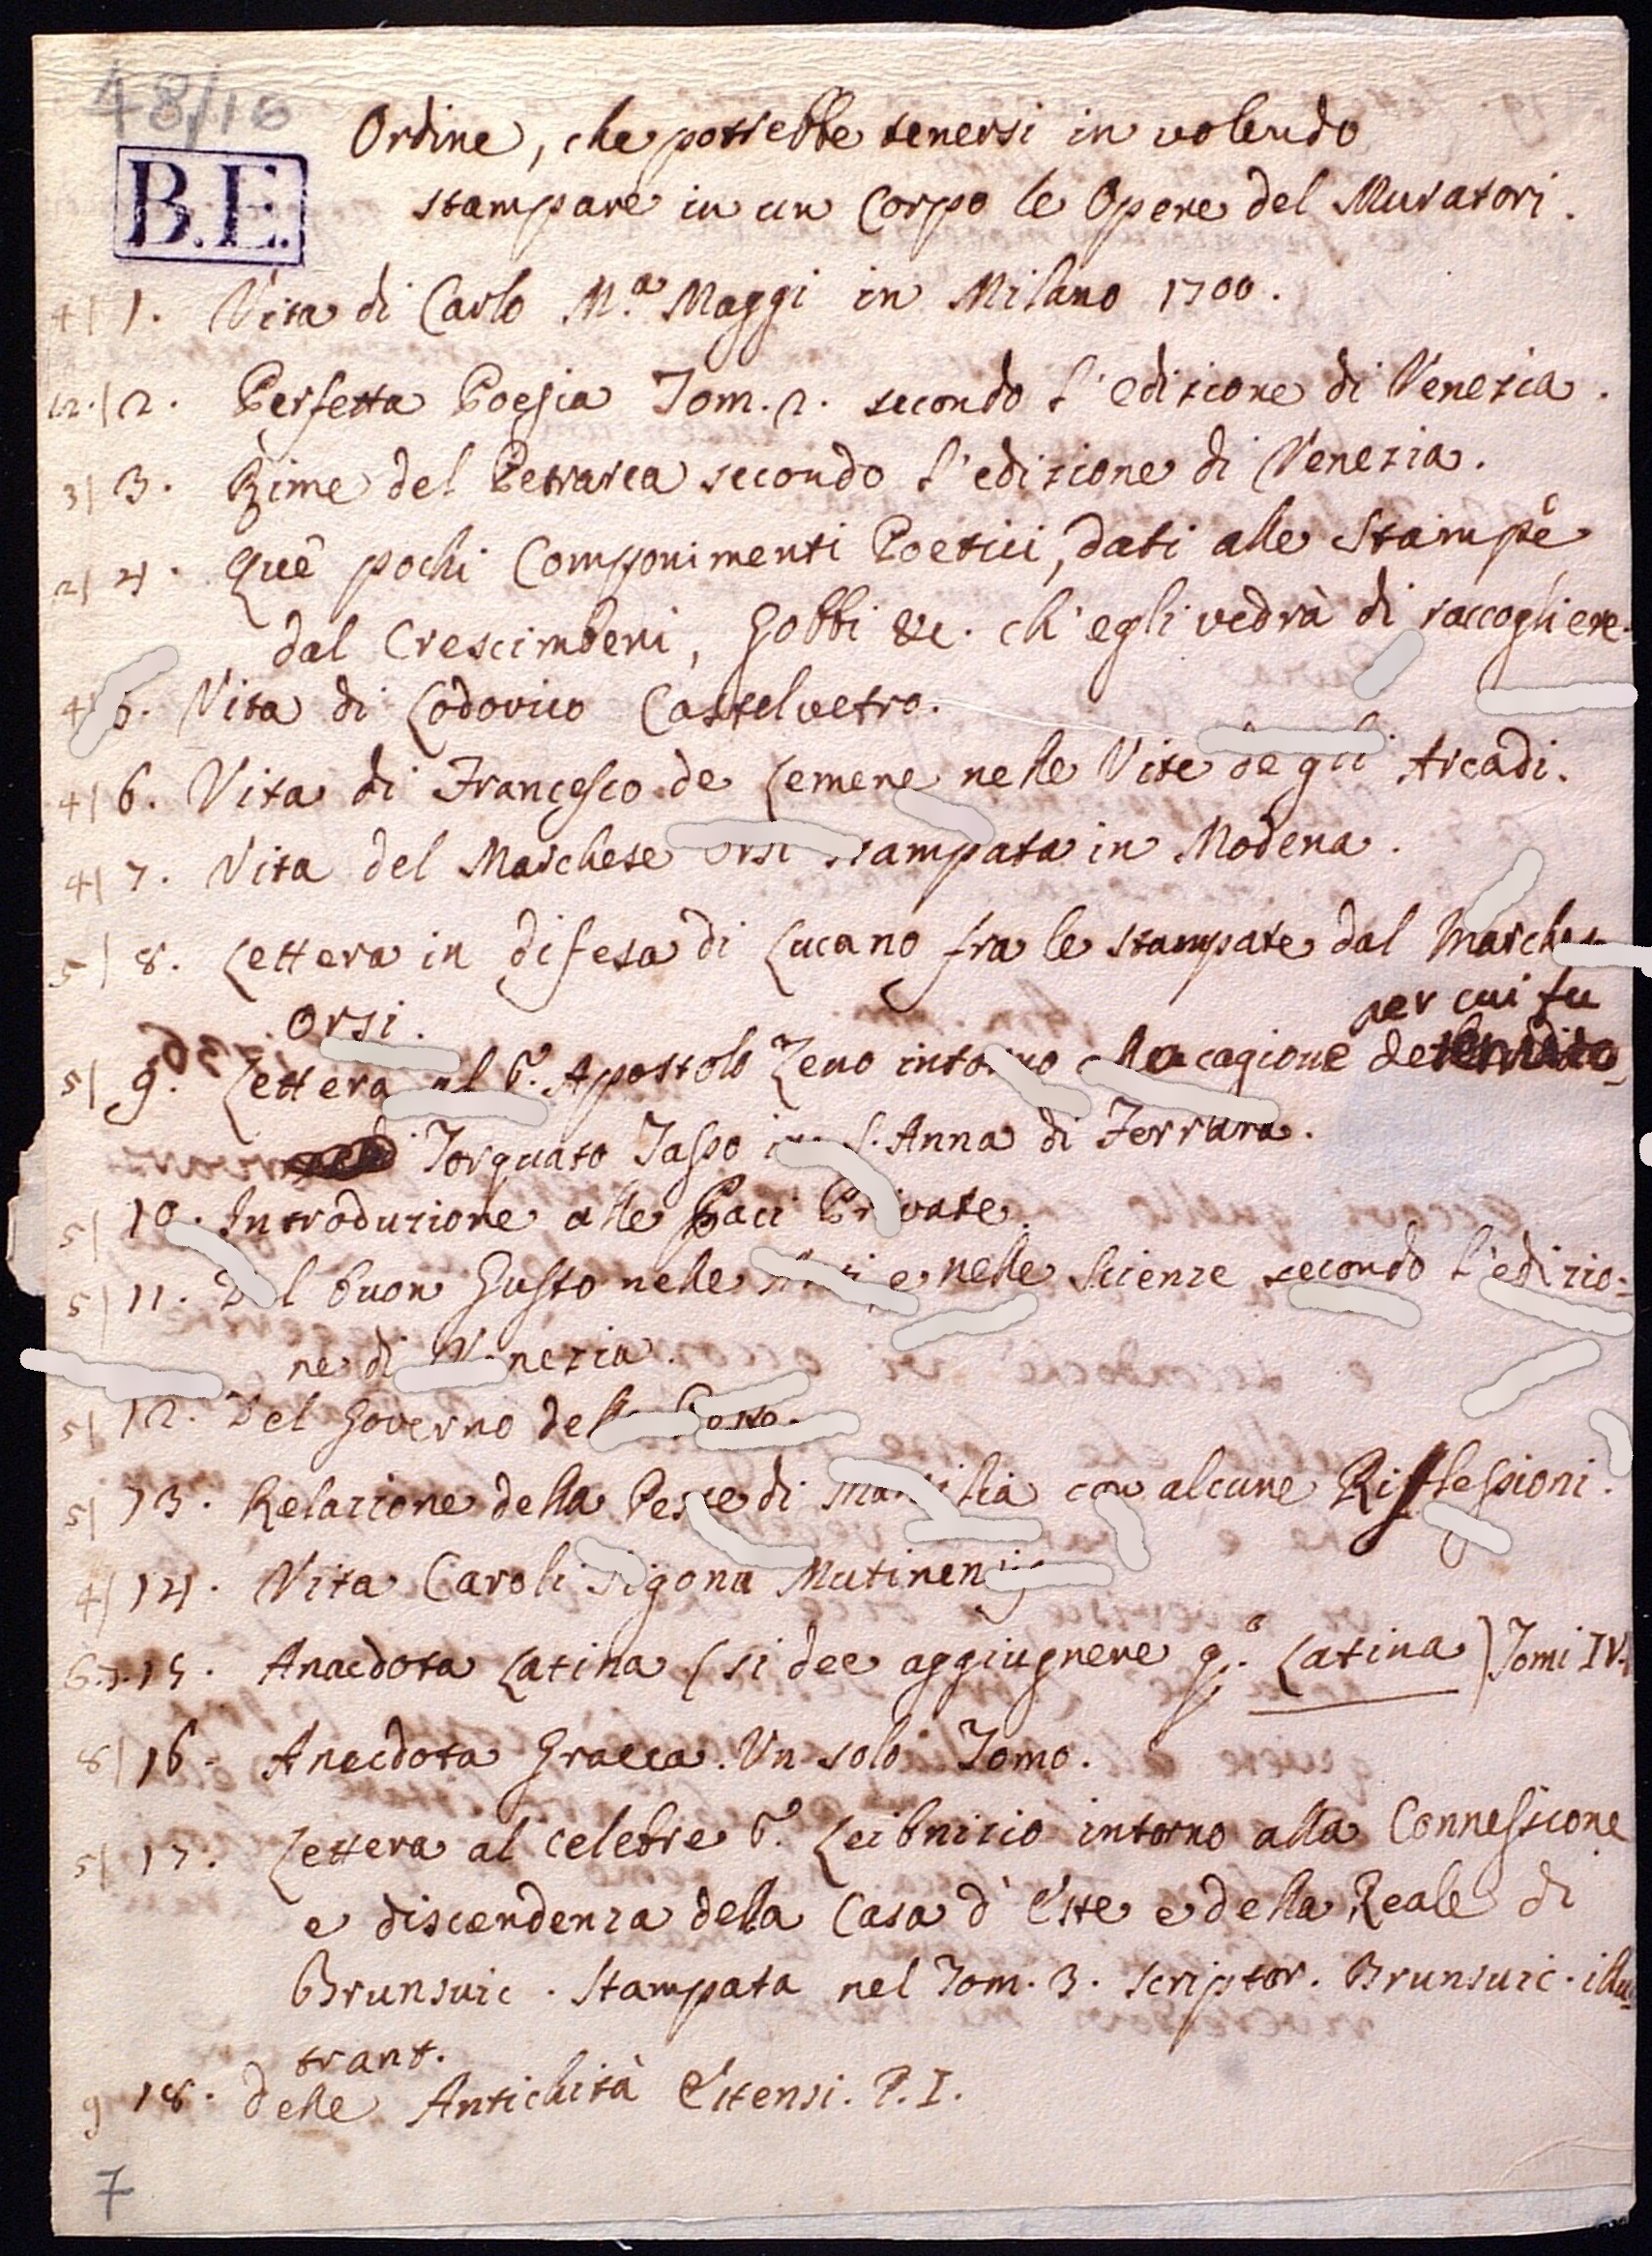 48/16
B.E.
Ordine, che potrebbe tenersi in volendo
stampare in un Corpo le Opere del Muratori.
4| 1. Vita di Carlo M.a Maggi in Milano 1700.
1.2.| 2. Perfetta Poesia Tom. 2. secondo l'edizione di Venezia.
3| 3. Rime del Petrarca secondo l'edizione di Venezia.
2| 4. Que' pochi Componimenti Poetici, dati alle Stampe
dal Crescimbeni, Gobbi &c. ch'egli vedrà di raccogliere.
4| 5. Vita di Lodovico Castelvetro.
4| 6. Vita di Francesco de Lemene nelle Vite degli Arcadi.
4| 7. Vita del Marchese Orsi stampata in Modena.
5| 8. Lettera in difesa di Lucano fra le stampate dal Marchese
Orsi.
per cui fu
5| 9. Lettera al S. Apostolo Zeno intorno alla cagione
Torquato Tasso in S. Anna di Ferrara.
5| 10. Introduzione alle Paci Private.
5| 11. Del buon Gusto nelle Arti, e nelle Scienze secondo l'edizio-
ne di Venezia.
5| 12. Del Governo della Peste.
5| 13. Relazione della Peste di Marsilia con alcune Riflessioni.
4| 14. Vita Caroli Sigonii Mutinensis
6.7. 15. Anecdota Latina (si dee aggiugnere q.a Latina) Tomi IV.
8| 16. Anecdota Graeca. Un solo Tomo.
5| 17. Lettera al celebre S. Leibnizio intorno alla Connessione
e discendenza della Casa d'Este e della Reale di
Brunsuic. Stampata nel Tom. 3. Scriptor. Brunsuic. illu-
strant.
9 18. Delle Antichità Estensi. P. I.
7